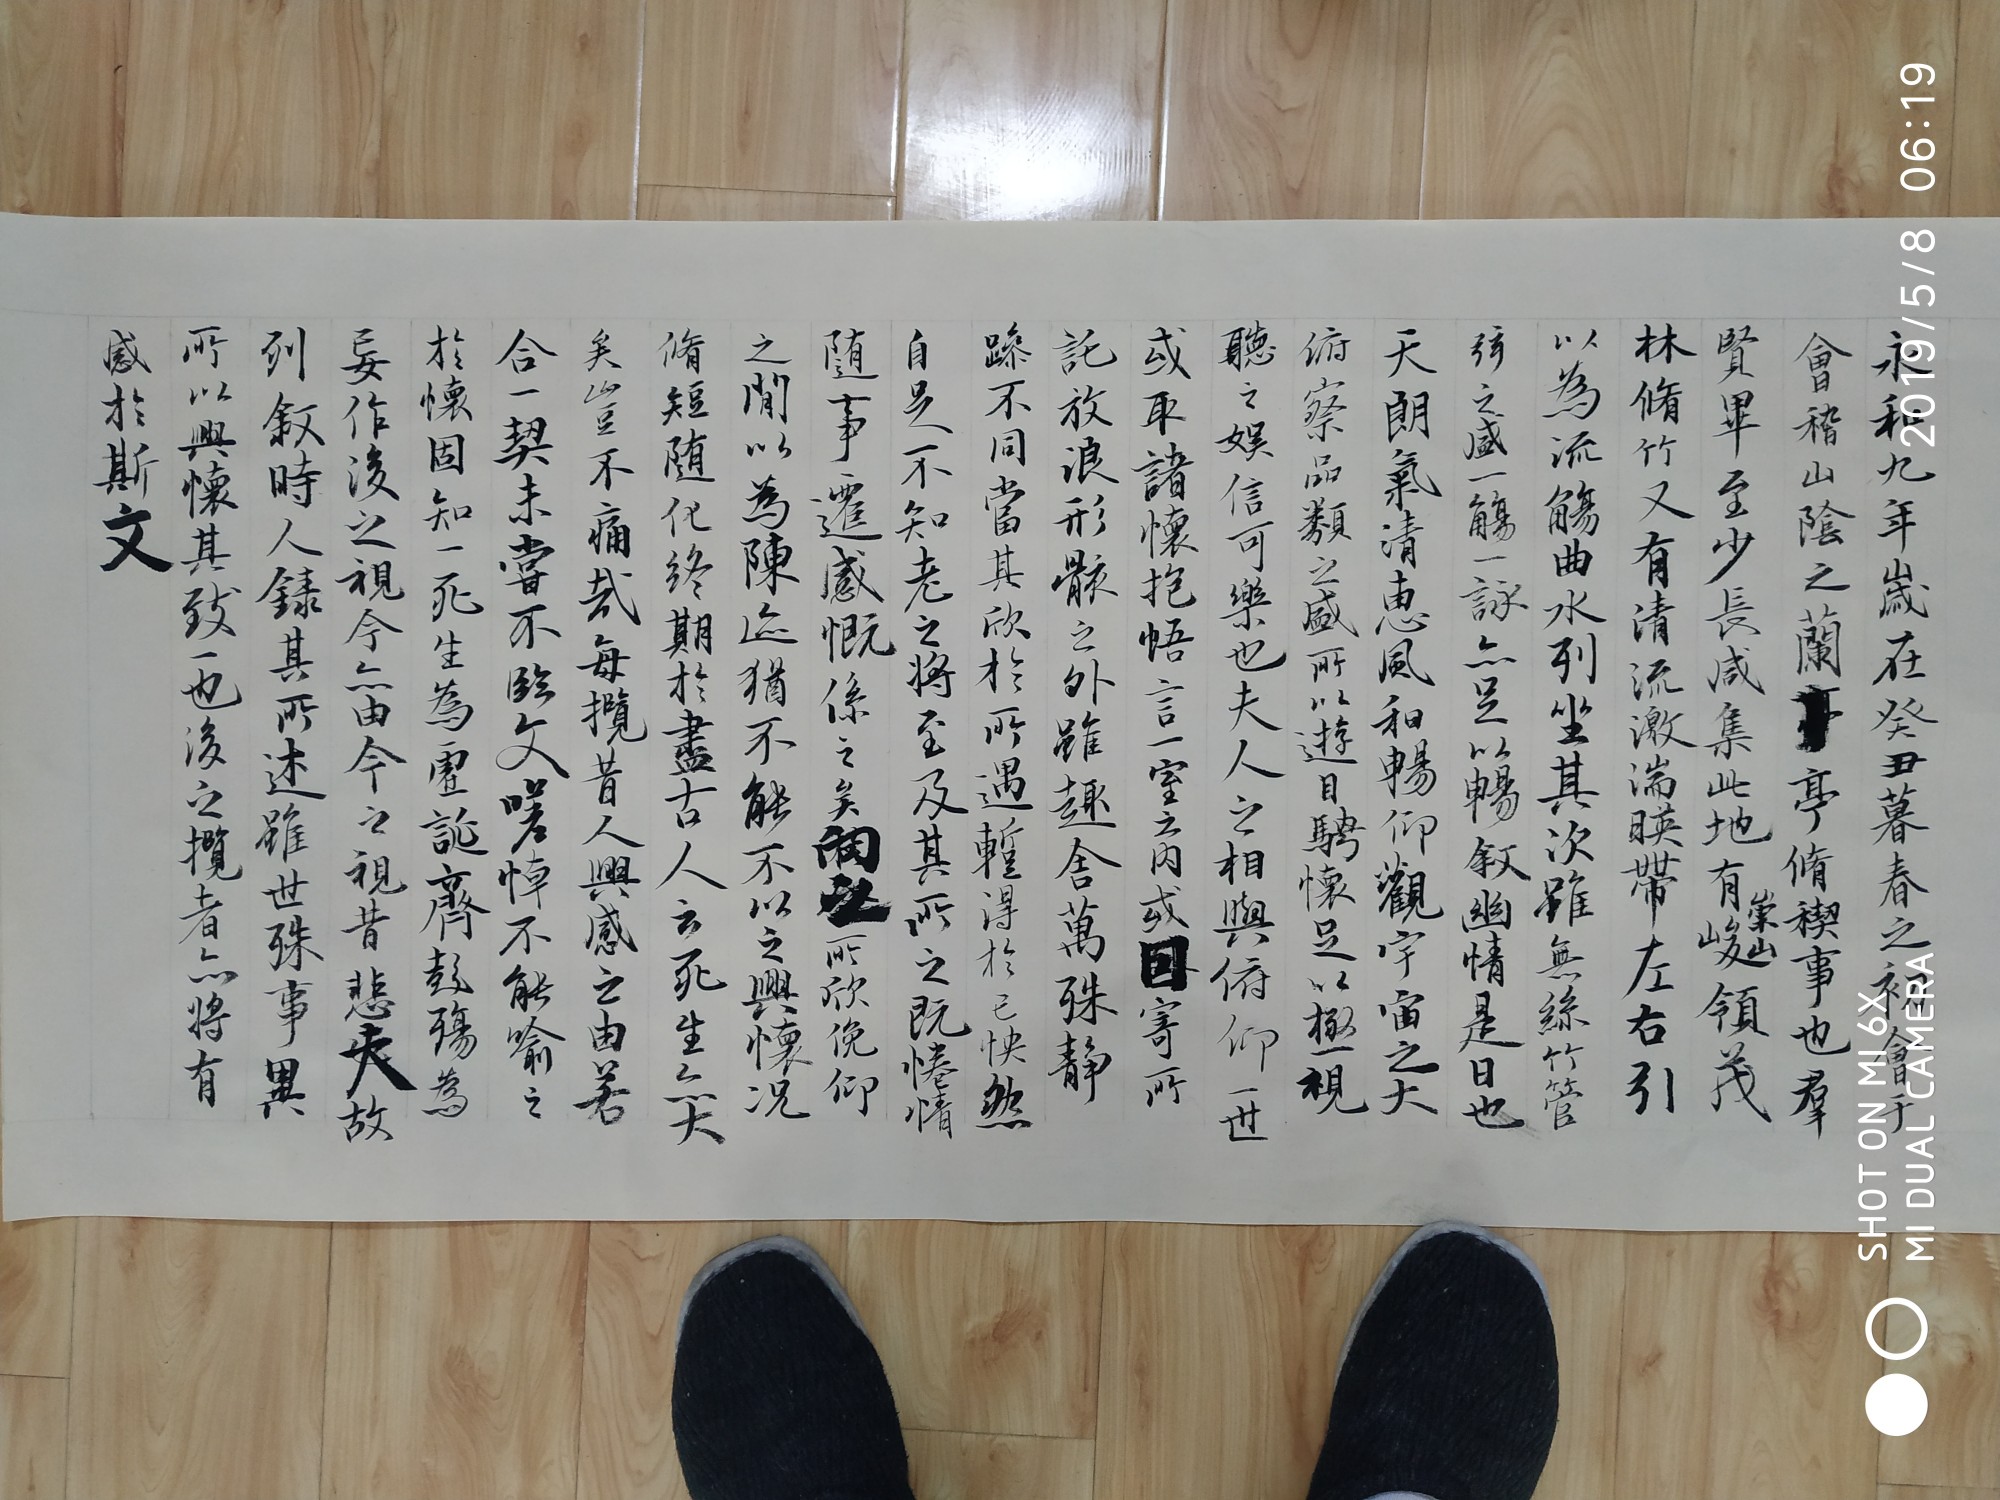 永和九年歲在癸丑暮春之初會于
會稽山陰之蘭亭亭脩稧事也羣
賢畢至少長咸集此地有
崇山
峻領茂
林脩竹又有清流激湍暎帶左右引
以為流觴曲水列坐其次雖無絲竹管
弦之盛一觴一詠亦足以暢敘幽情是日也
天朗氣清惠風和暢仰觀宇宙之大
俯察品類之盛所以遊目騁懷足以極視
聽之娛信可樂也夫人之相與俯仰一世
或取諸懷抱悟言一室之內或因寄所
託放浪形骸之外雖趣舍萬殊靜
躁不同當其欣於所遇蹔得於己怏然
自足不知老之將至及其所之既惓情
隨事遷感慨係之矣向之所欣俛仰
之閒以為陳迹猶不能不以之興懷況
脩短隨化終期於盡古人云死生亦大
矣豈不痛哉每攬昔人興感之由若
合一契未嘗不臨文嗟悼不能喻之
於懷固知一死生為虛誕齊彭殤為
妄作後之視今亦由今之視昔悲夫故
列敘時人錄其所述雖世殊事異
所以興懷其致一也後之攬者亦將有
感於斯文
2019/5/8 06:19
SHOT ON MI 6X
MI DUAL CAMERA